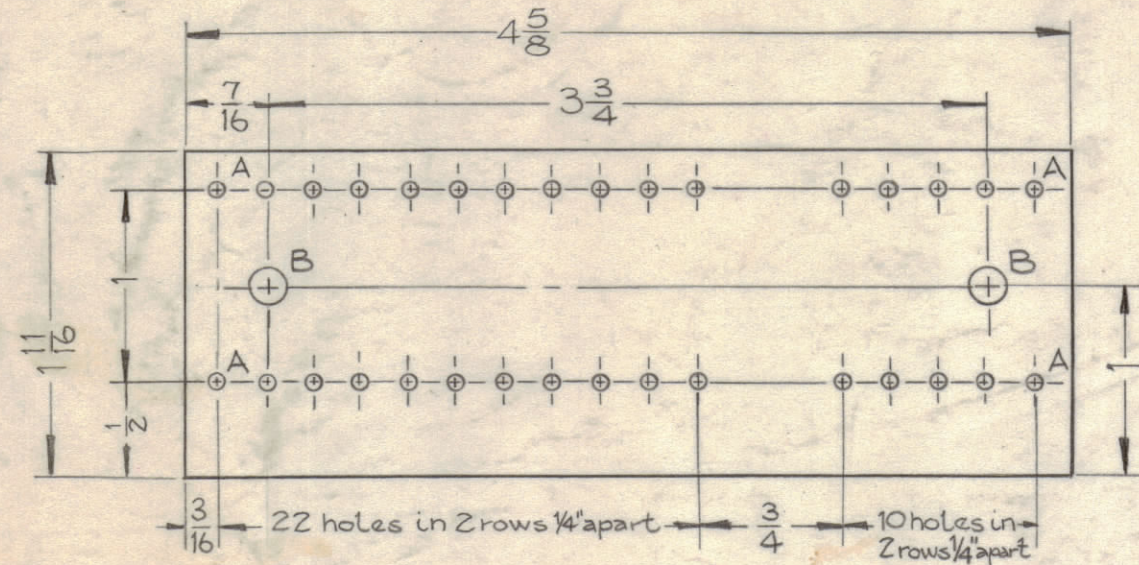 4 5/8
7/16
3 3/4
A
A
B
B
1
1 11/16
A
A
1
1/2
3/16
22 holes in 2 rows 1/4" apart
3/4
10 holes in
2 rows 1/4" apart